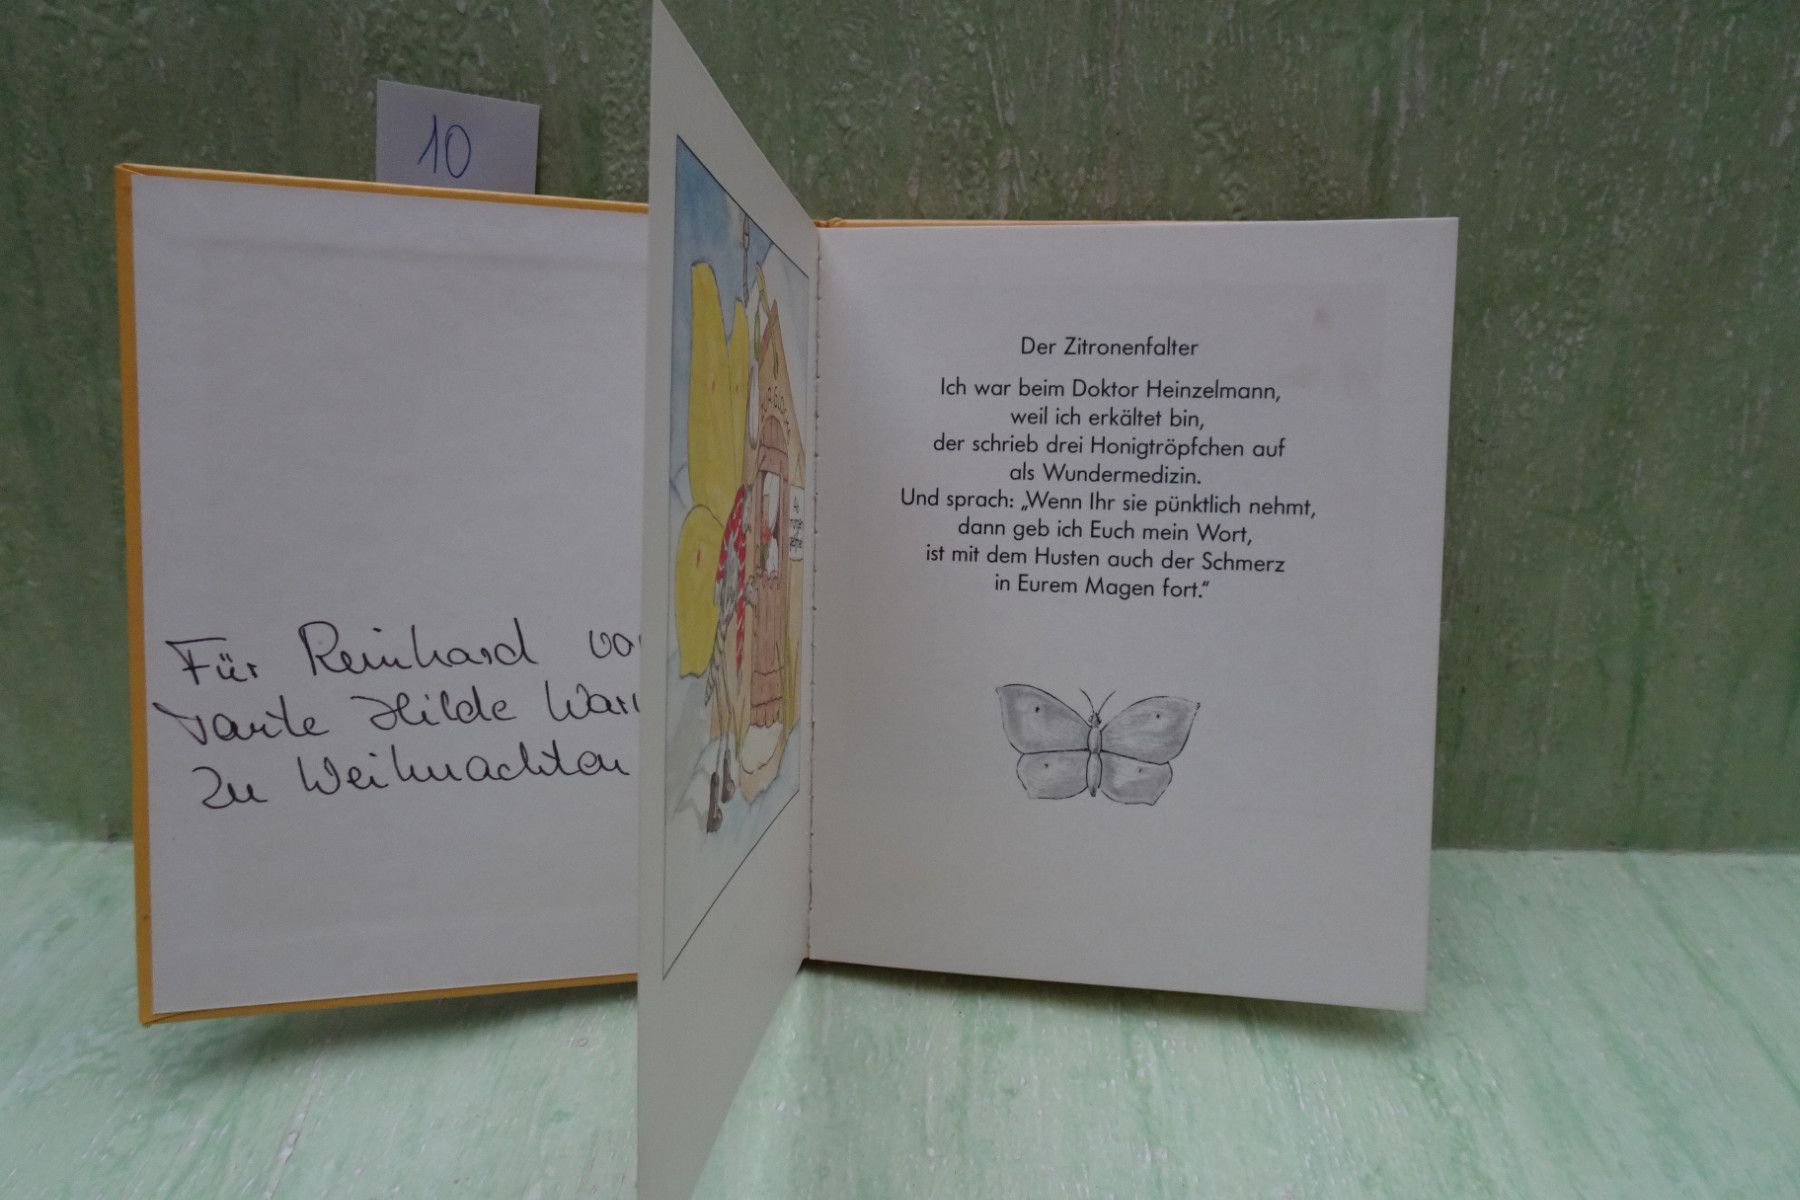 10
Für Reinhard
Tante Hilde
zu Weihnachten
Der Zitronenfalter
Ich war beim Doktor Heinzelmann,
weil ich erkältet bin,
der schrieb drei Honigtröpfchen auf
als Wundermedizin.
Und sprach: „Wenn Ihr sie pünktlich nehmt,
dann geb ich Euch mein Wort,
ist mit dem Husten auch der Schmerz
in Eurem Magen fort.“